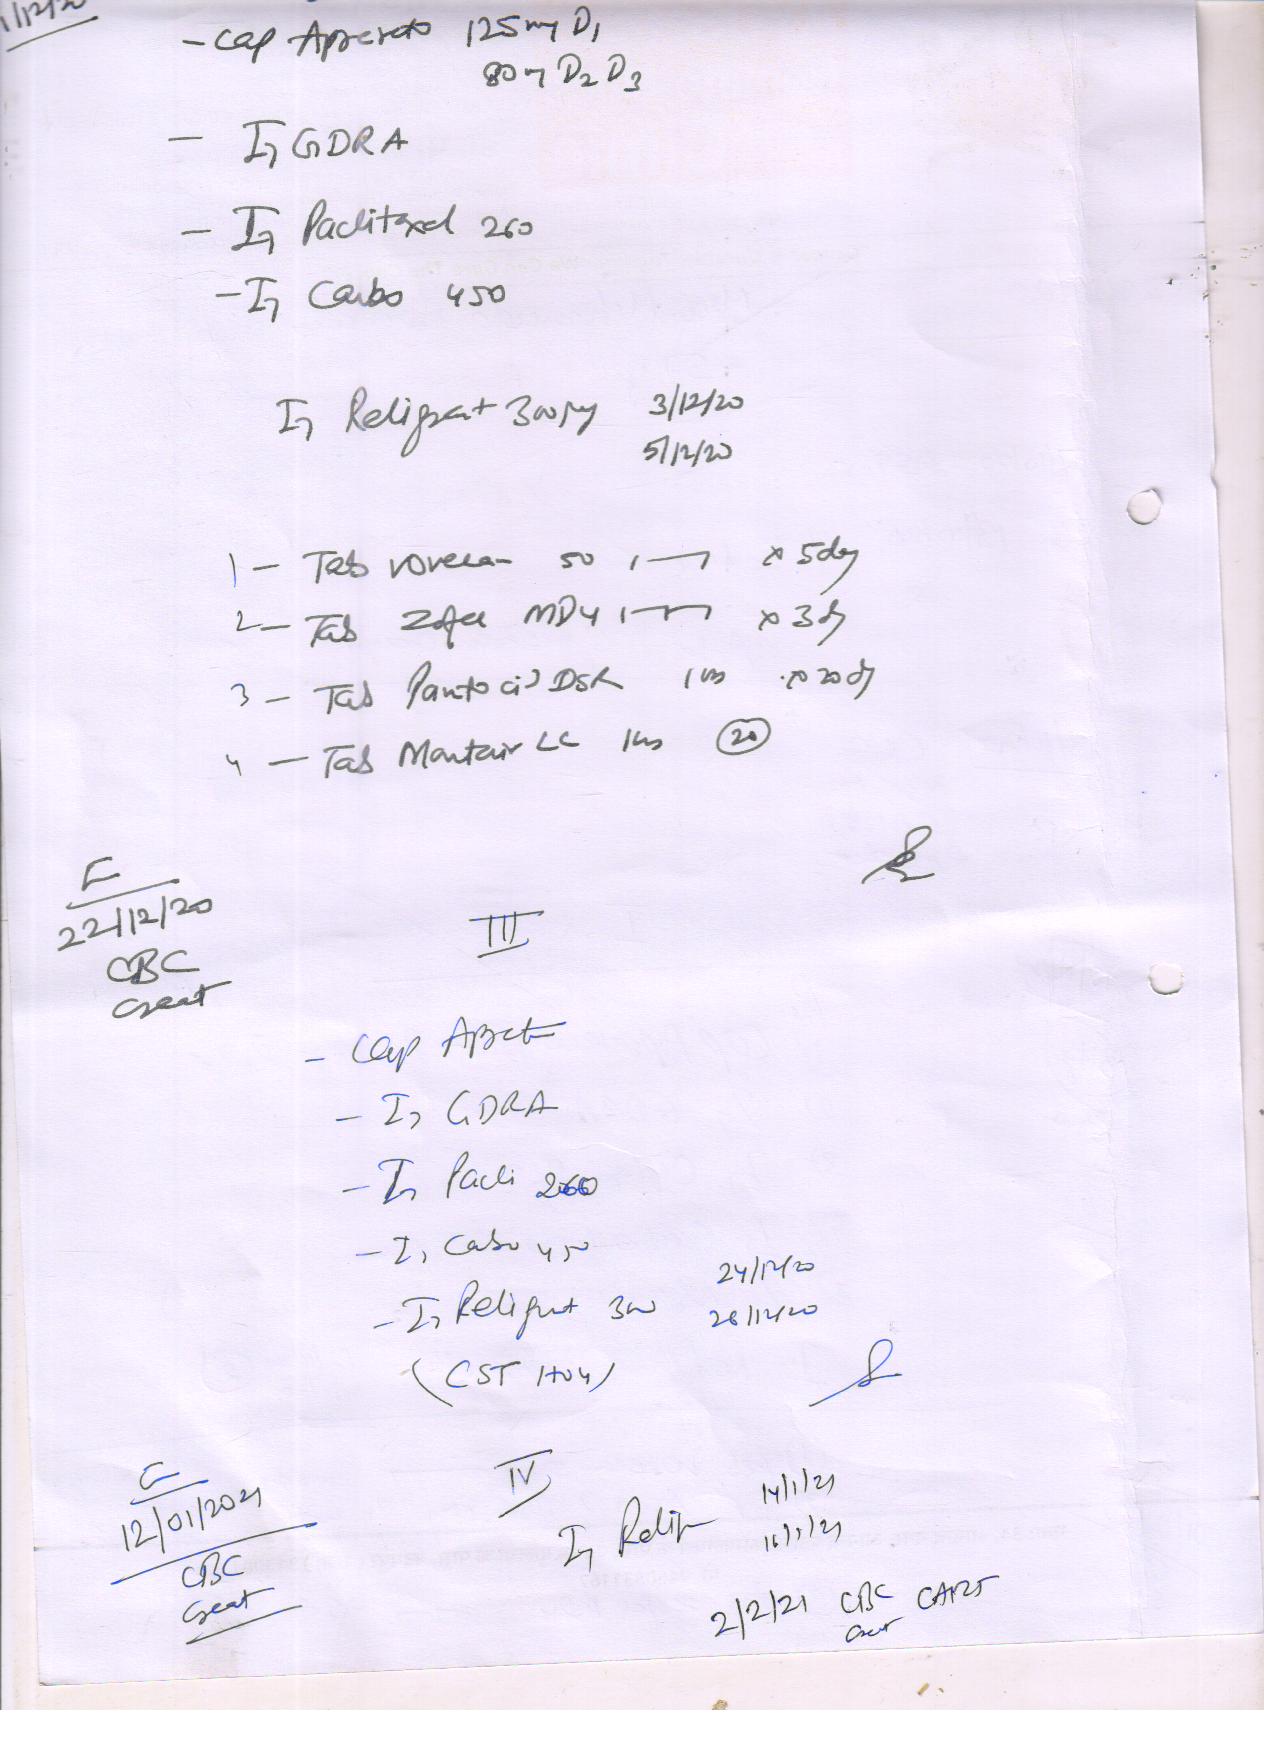 1/12/20
- Cap Apreeto 125mg D1
80mg D2 D3
- Inj GDRA
- Inj Paclitaxel 260
- Inj Carbo 450
Inj Religrast 300mg 3/12/20
5/12/20
1 - Tab Voveran 50 1—1 x 5dy
2 - Tab Zofer MD4 1—1 x 3dy
3 - Tab Pantocid DSR 1 x 20dy
4 - Tab Montair LC 20
22/12/20
CBC
Creat
III
- Cap
- Inj GDRA
- Inj Pacli 260
- Inj Carbo 450
24/12/20
- Inj Religrast 300
26/12/20
(CST
IV
12/01/2021
CBC
Creat
Inj 14/1/21
16/1/21
2/2/21 CBC
Creat